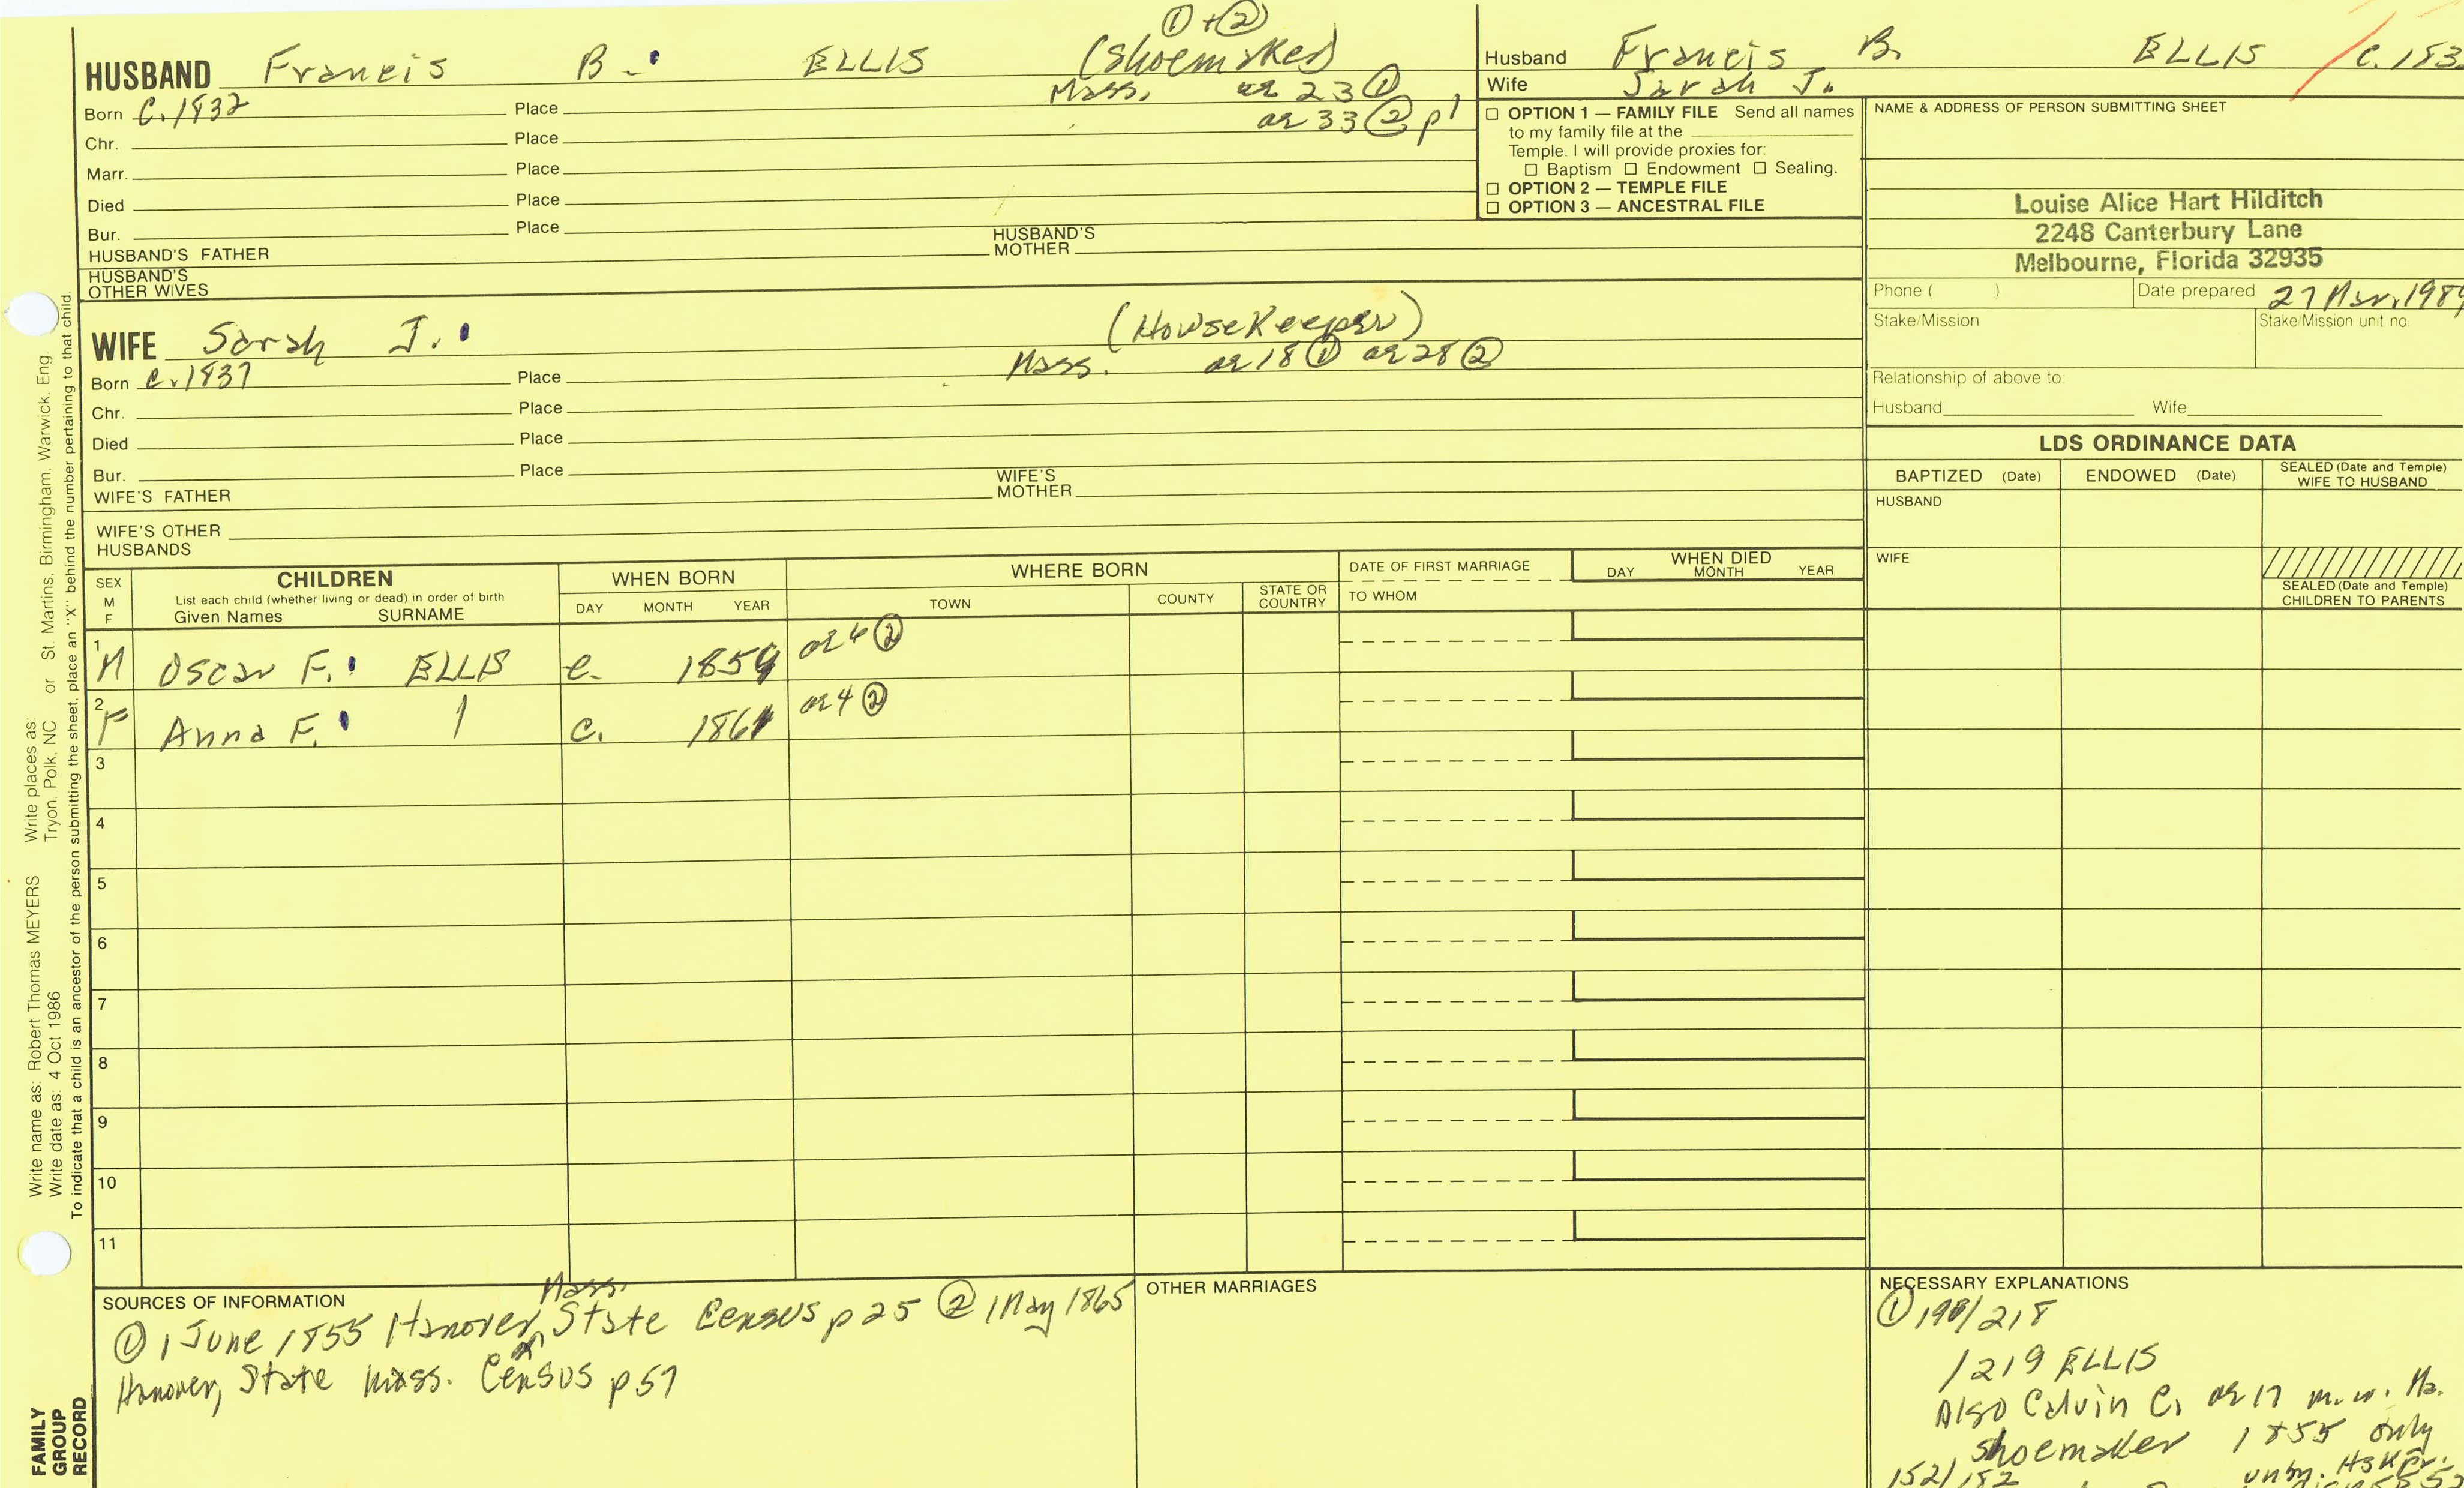 ① + ②
HUSBAND Francis B. ELLIS (Shoemaker)
Born C. 1832 Place Mass. ae 23 ①
ae 33 ② p1
Chr. Place
Marr. Place
Died Place
Bur. Place
HUSBAND'S FATHER HUSBAND'S MOTHER
HUSBAND'S OTHER WIVES
WIFE Sarah J. (Housekeeper)
Born C. 1837 Place Mass. ae 18 ① ae 28 ②
Chr. Place
Died Place
Bur. Place
WIFE'S FATHER WIFE'S MOTHER
WIFE'S OTHER HUSBANDS
Husband Francis B. ELLIS / C. 183
Wife Sarah J.
☐ OPTION 1 — FAMILY FILE Send all names
to my family file at the
Temple. I will provide proxies for:
☐ Baptism ☐ Endowment ☐ Sealing.
☐ OPTION 2 — TEMPLE FILE
☐ OPTION 3 — ANCESTRAL FILE
NAME & ADDRESS OF PERSON SUBMITTING SHEET
Louise Alice Hart Hilditch
2248 Canterbury Lane
Melbourne, Florida 32935
Phone ( ) Date prepared 27 Mar. 1989
Stake/Mission Stake/Mission unit no.
Relationship of above to:
Husband Wife
LDS ORDINANCE DATA
BAPTIZED (Date) ENDOWED (Date) SEALED (Date and Temple) WIFE TO HUSBAND
HUSBAND
WIFE
SEALED (Date and Temple) CHILDREN TO PARENTS
SEX M F
CHILDREN
List each child (whether living or dead) in order of birth
Given Names SURNAME
WHEN BORN
DAY MONTH YEAR
WHERE BORN
TOWN COUNTY STATE OR COUNTRY
DATE OF FIRST MARRIAGE
TO WHOM
WHEN DIED
DAY MONTH YEAR
1 M Oscar F. ELLIS c. 1859 ae 6 ②
2 F Anna F. | c. 1861 ae 4 ②
3
4
5
6
7
8
9
10
11
SOURCES OF INFORMATION
Mass.
① 1 June 1855 Hanover, State Census p 25 ② 1 May 1865
Hanover, State Mass. Census p 57
OTHER MARRIAGES
NECESSARY EXPLANATIONS
① 198/218
/219 ELLIS
Also Calvin C. ae 17 m. w. Ma.
shoemaker 1855 only
152/182 unm. Hskpr.
Write name as: Robert Thomas MEYERS Write places as: St. Martins, Birmingham, Warwick, Eng
Write date as: 4 Oct 1986 Tryon, Polk, NC or
To indicate that a child is an ancestor of the person submitting the sheet, place an "X" behind the number pertaining to that child.
FAMILY
GROUP
RECORD